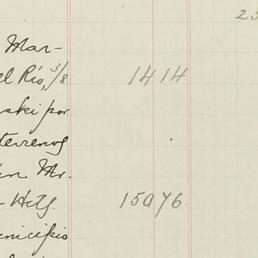 23
Mar-
el Río, 3/8 1414
ski por
terrenos
Mr.
Htg. 15076
nicipio